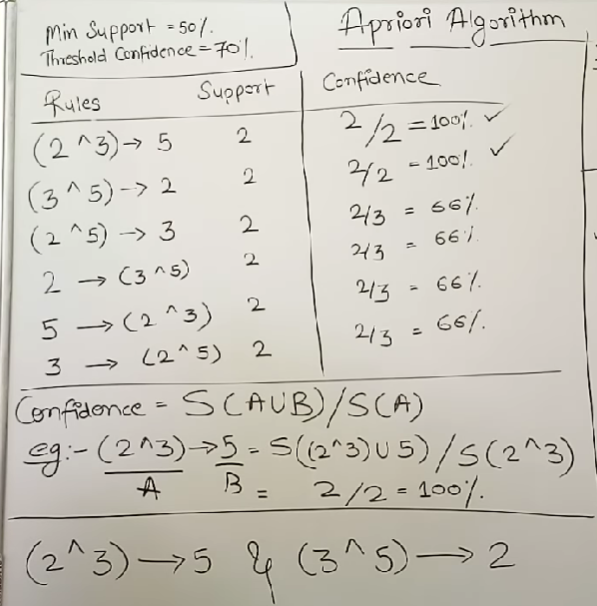 Min Support = 50%.
Threshold Confidence = 70%.
Apriori Algorithm
Rules Support Confidence
(2^3) → 5 2 2/2 = 100%. ✓
(3^5) → 2 2 2/2 = 100%. ✓
(2^5) → 3 2 2/3 = 66%.
2 → (3^5) 2 2/3 = 66%.
5 → (2^3) 2 2/3 = 66%.
3 → (2^5) 2 2/3 = 66%.
Confidence = S(A∪B)/S(A)
eg:- (2^3) → 5 = S((2^3)∪5)/S(2^3)
A B = 2/2 = 100%.
(2^3) → 5 & (3^5) → 2